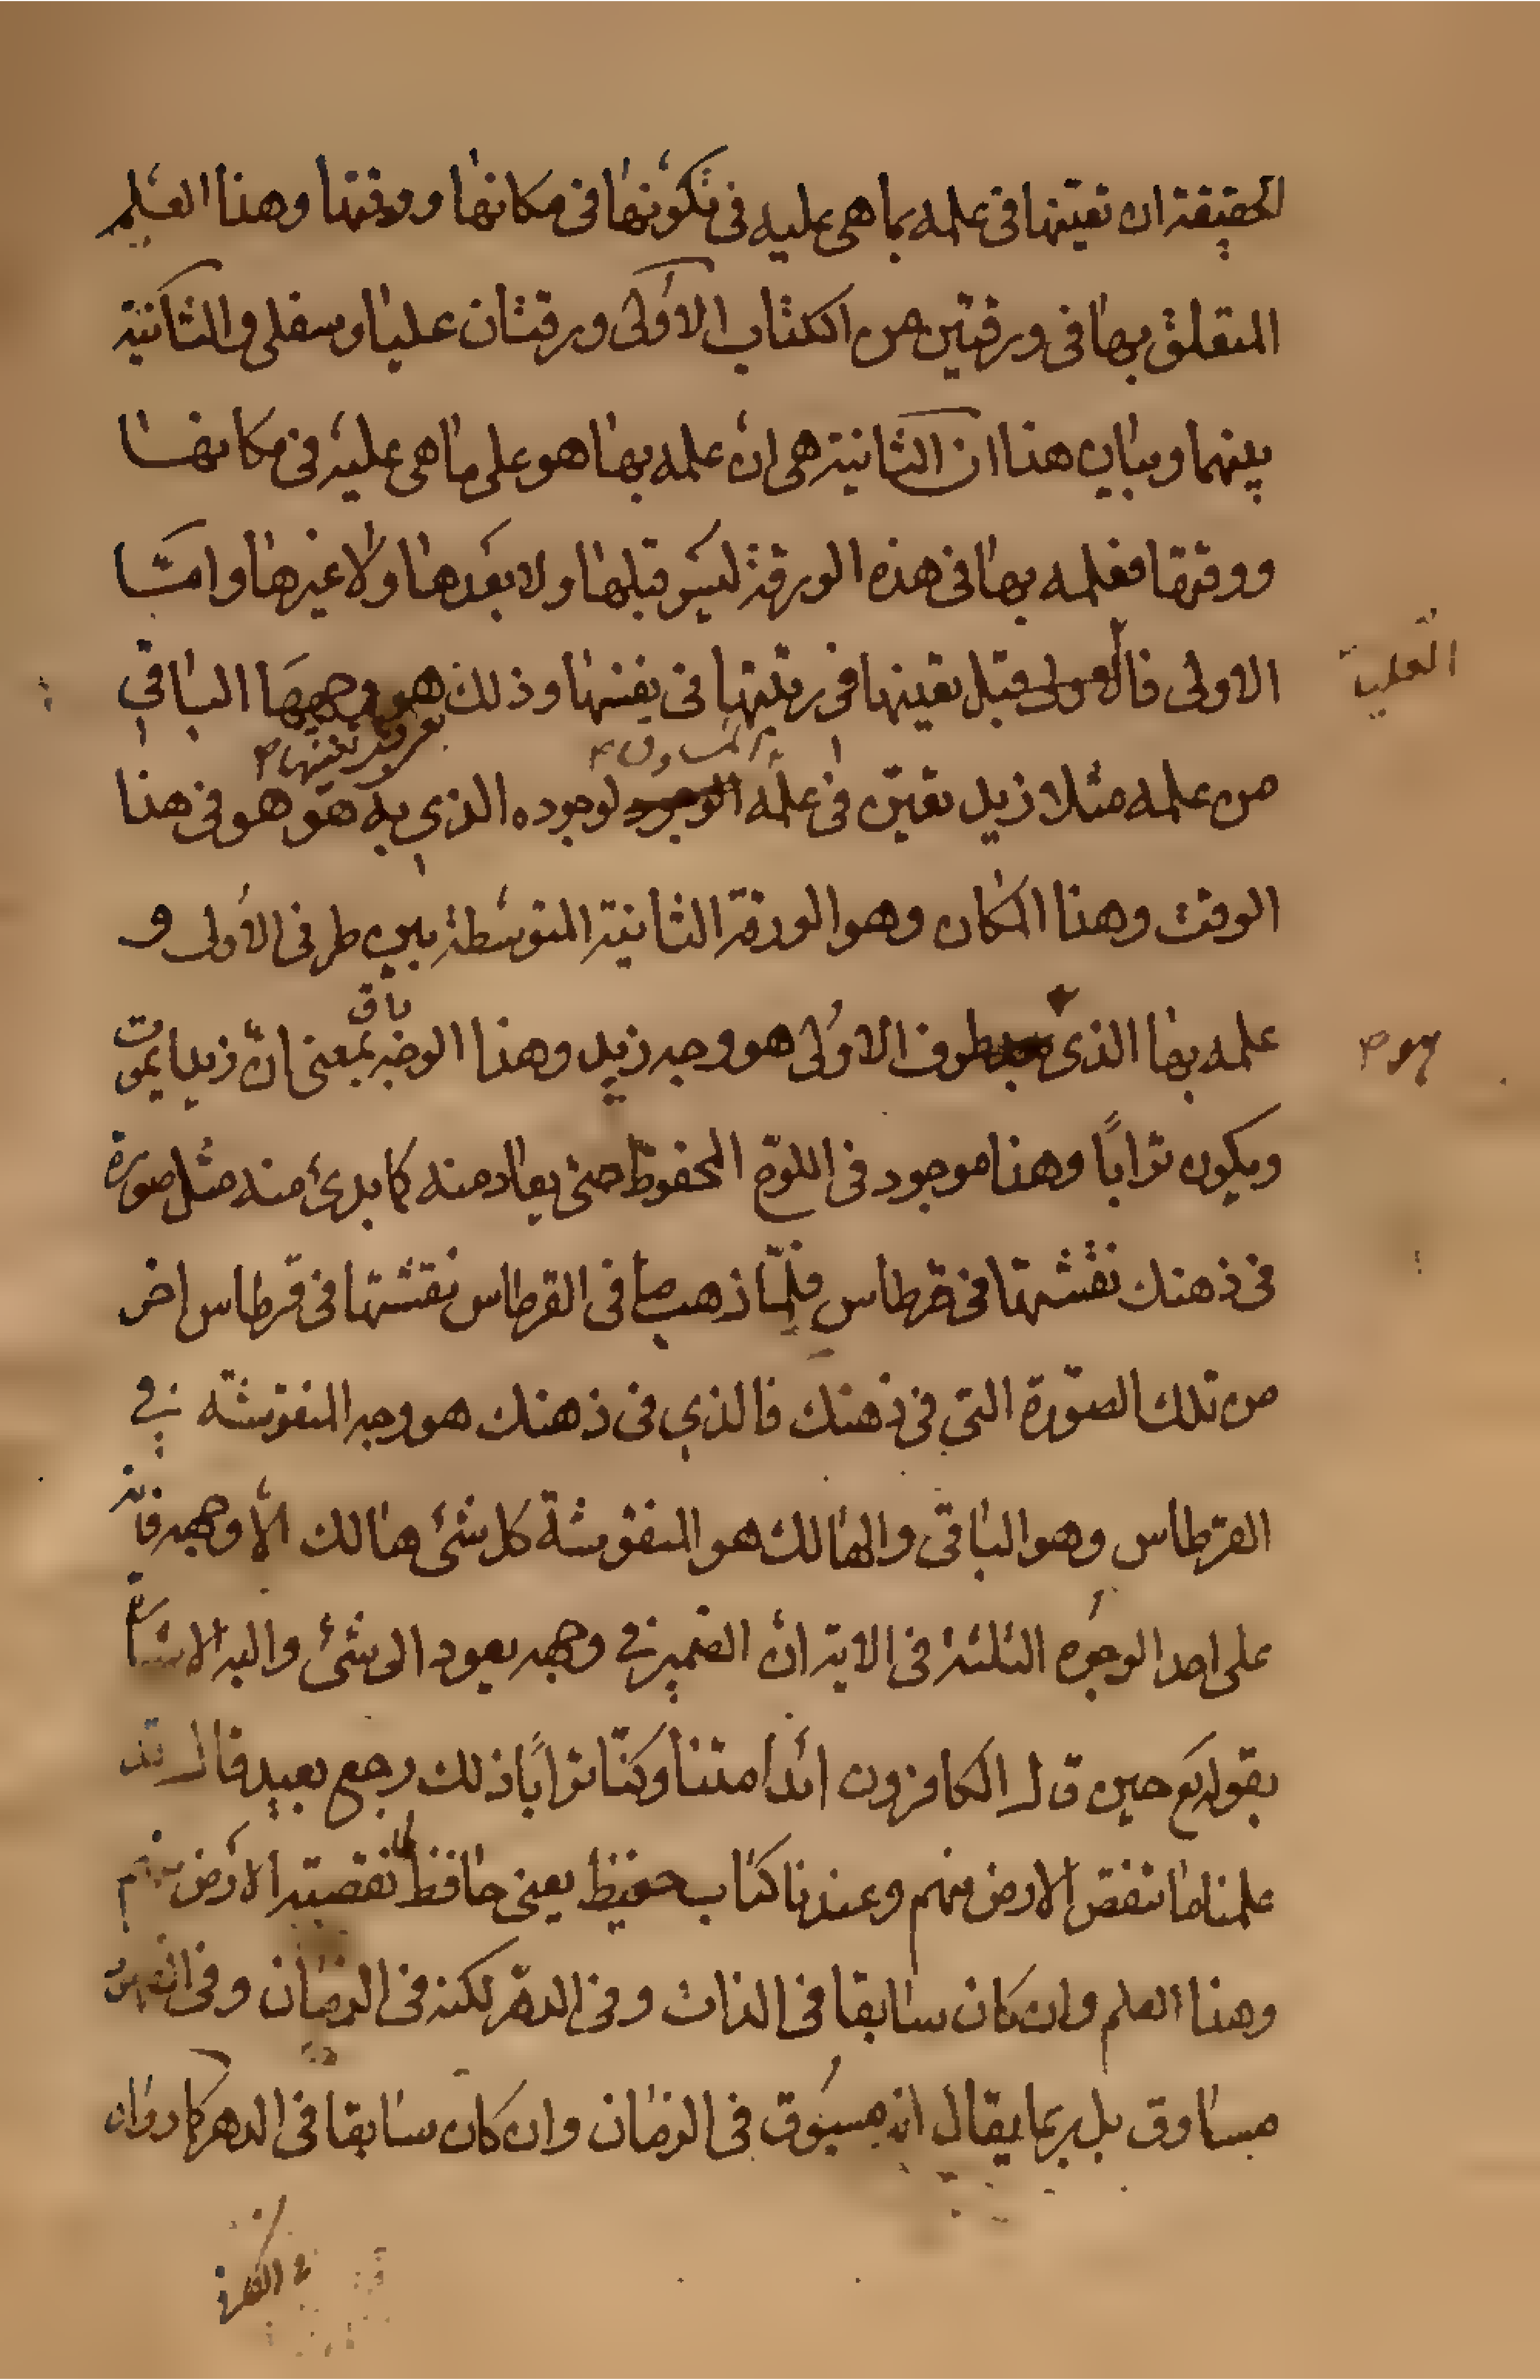 الحقيقة ان تعينها في علمه بما هي عليه في تكونها في مكانها ووقتها وهذا العلم
المتعلق بها في ورقتين من الكتاب الاولى ورقتان عليا وسفلى والثانية
بينهما وبيان هذا ان الثانية هي ان علمه بها هو على ما هي عليه في مكانها
ووقتها فعلمه بها في هذه الورقة ليس قبلها ولا بعدها ولا غيرها وامّا
الاولى فالاولى قبل تعينها في رتبتها في نفسها وذلك هو وجهها الباقي
العليا
بعد تعينها
المساوق
من علمه مثلا زيد تعيّن في علمه لوجوده الذي به هو هو في هذا
الوقت وهذا المكان وهو الورقة الثانية المتوسطة بين طرفي الاولى و
باق
علمه بها الذي طرف الاولى هو وجه زيد وهذا الوجه بمعنى انّ زيدا يموت
ويكون ترابًا وهذا موجود في اللوح المحفوظ حتى يعاد منه كما بدئ منه مثل صورة
في ذهنك نقشتها في قرطاس فلمّا ذهب ما في القرطاس نقشتها في قرطاس اخر
من تلك الصّورة التي في ذهنك فالذي في ذهنك هو وجه المنقوشة في
القرطاس وهو الباقي والهالك هو المنقوشة كل شئ هالك الّا وجهه فانه
على احد الوجوه الثلثة في الاية ان الضمير في وجهه يعود الى شئ واليه الاشارة
بقوله تع حين قال الكافرون ائذا متنا وكنّا ترابًا ذلك رجع بعيد قال قد
علمنا ما تنقص الارض منهم وعندنا كتاب حفيظ يعني حافظ لما تنقصه الارض منهم
وهذا العلم وان كان سابقا في الذات وفي الدهر لكنه في الزمان وفي
مساوق بل ربما يقال انه مسبوق في الزمان وان كان سابقا في الدهر كما روا ان